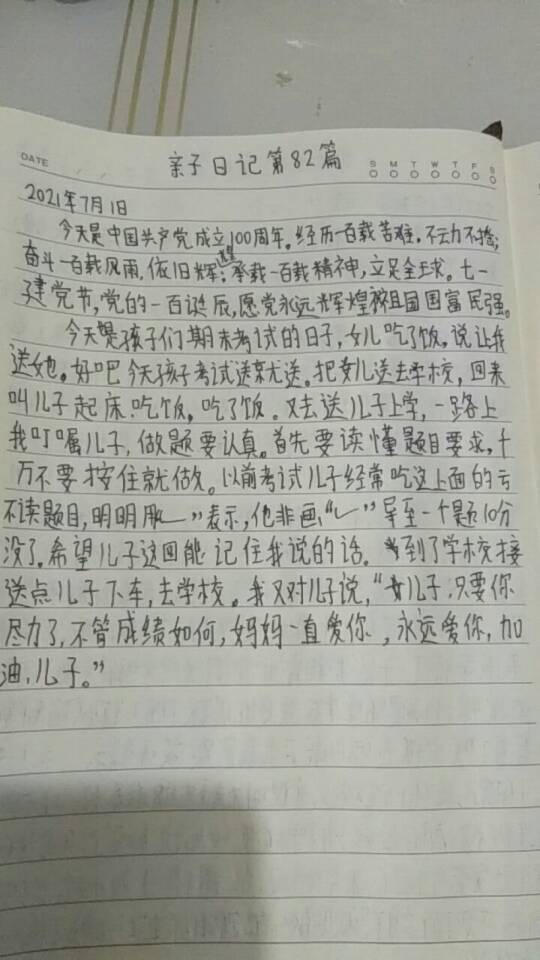 DATE
亲子日记第82篇
S M T W T F S
2021年7月1日
今天是中国共产党成立100周年。经历一百载苦难,不云力不挠;
奋斗一百载风雨,依旧辉煌;承载一百载精神,立足全球。七一
建党节,党的一百诞辰,愿党永远辉煌祝祖国国富民强。
今天是孩子们期末考试的日子,女儿吃了饭,说让我
送她。好吧今天孩子考试送就送。把女儿送去学校,回来
叫儿子起床.吃饭,吃了饭.又去送儿子上学,一路上
我叮嘱儿子,做题要认真。首先要读懂题目要求,千
万不要按住就做。以前考试儿子经常吃这上面的亏
不读题目,明明用"㇏"表示,他非画"✓"导至一个题10分
没了.希望儿子这回能记住我说的话.到了学校接
送点儿子下车,去学校。我又对儿子说,"儿子.只要你
尽力了,不管成绩如何,妈妈一直爱你,永远爱你,加
油,儿子。"